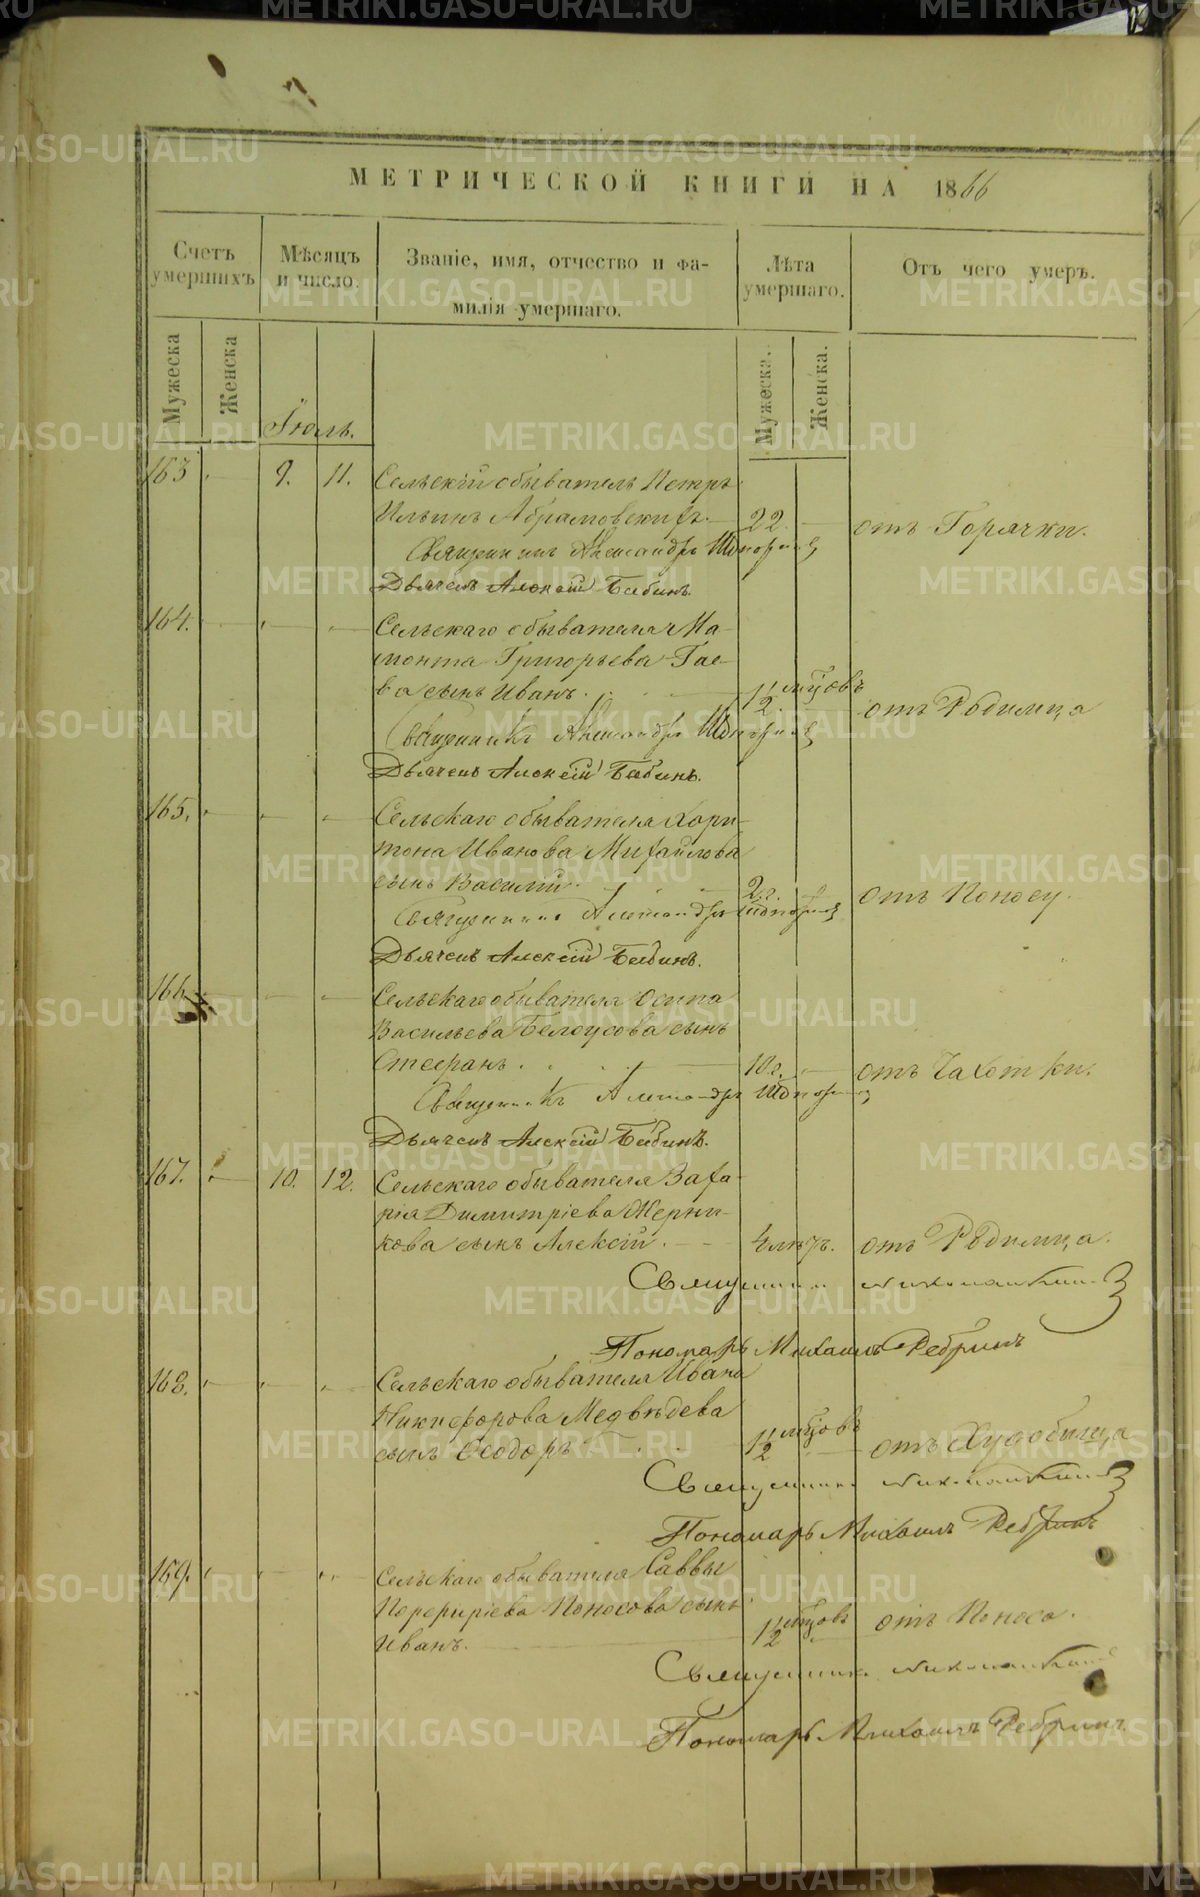 МЕТРИЧЕСКОЙ КНИГИ НА 1866
Счетъ умершихъ
Мѣсяцъ и число.
Званіе, имя, отчество и фа-
милія умершаго.
Лѣта умершаго.
Отъ чего умеръ.
Мужеска
Женска
Мужеска.
Женска.
Іюль.
163 9. 11. Сельскій обыватель Петръ
Ильинъ Абрамовскихъ. 22. отъ Горячки.
Священникъ Александръ
Дьячекъ Алексій Бабинъ.
164. Сельскаго обывателя Ма-
монта Григорьева Гае-
ва сынъ Иванъ. 1/2 мѣсяцовъ отъ Родимца
Священникъ Александръ
Дьячекъ Алексій Бабинъ.
165. Сельскаго обывателя Хари-
тона Иванова Михайлова
сынъ Василій. 2 г. отъ Поносу.
Священникъ Александръ
Дьячекъ Алексій Бабинъ.
166 Сельскаго обывателя Осипа
Васильева Белоусова сынъ
Стефанъ. 10 г. отъ Чахотки.
Священникъ Александръ
Дьячекъ Алексій Бабинъ.
167. 10. 12. Сельскаго обывателя Заха-
рія Димитріева
кова сынъ Алексій. 4 лѣтъ. отъ Родимца.
Священникъ
Пономарь Михаилъ Ребринъ
168. Сельскаго обывателя Ивана
Никифорова Медвѣдева
сынъ Ѳеодоръ 1/2 мѣсяцовъ отъ Худобища
Священникъ
Пономарь Михаилъ Ребринъ
169. Сельскаго обывателя Саввы
Порфиріева Поносова сынъ
Иванъ. 1/2 мѣсяцовъ отъ Поноса.
Священникъ
Пономарь Михаилъ Ребринъ
METRIKI.GASO-URAL.RU